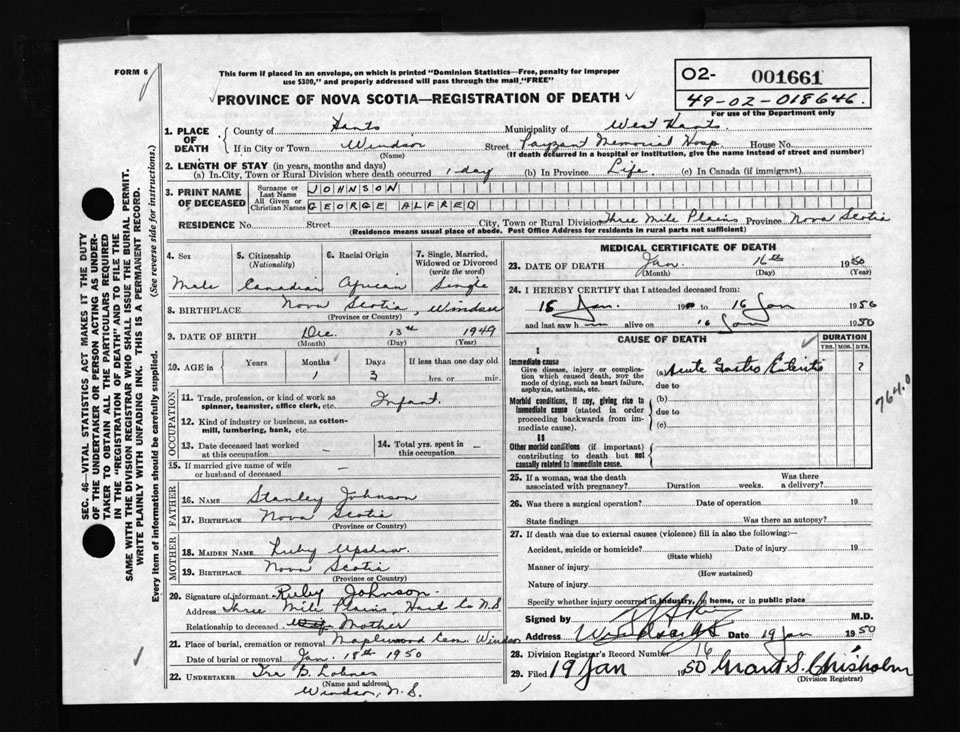 FORM 6
This form if placed in an envelope, on which is printed "Dominion Statistics—Free, penalty for improper
use $300," and properly addressed will pass through the mail "FREE"
PROVINCE OF NOVA SCOTIA—REGISTRATION OF DEATH
O2- 001661
49-02-018646.
For use of the Department only
SEC. 46—VITAL STATISTICS ACT MAKES IT THE DUTY
OF THE UNDERTAKER OR PERSON ACTING AS UNDER-
TAKER TO OBTAIN ALL THE PARTICULARS REQUIRED
IN THE "REGISTRATION OF DEATH" AND TO FILE THE
SAME WITH THE DIVISION REGISTRAR WHO SHALL ISSUE THE BURIAL PERMIT.
WRITE PLAINLY WITH UNFADING INK. THIS IS A PERMANENT RECORD.
Every item of information should be carefully supplied. (See reverse side for instructions.)
1. PLACE OF DEATH
County of Hants Municipality of West Hants
If in City or Town Windsor Street Payzant Memorial Hosp House No.
(Name) (If death occurred in a hospital or institution, give the name instead of street and number)
2. LENGTH OF STAY (in years, months and days)
(a) In City, Town or Rural Division where death occurred 1 day (b) In Province Life. (c) In Canada (if immigrant)
3. PRINT NAME OF DECEASED
Surname or Last Name JOHNSON
All Given or Christian Names GEORGE ALFRED
RESIDENCE No. Street City, Town or Rural Division Three Mile Plains Province Nova Scotia
(Residence means usual place of abode. Post Office Address for residents in rural parts not sufficient)
4. Sex
Male
5. Citizenship
(Nationality)
Canadian
6. Racial Origin
African
7. Single, Married,
Widowed or Divorced
(write the word)
Single
8. BIRTHPLACE Nova Scotia, Windsor
(Province or Country)
9. DATE OF BIRTH Dec. 13th 1949
(Month) (Day) (Year)
10. AGE in Years Months Days If less than one day old
1 3 hrs. or min.
OCCUPATION
11. Trade, profession, or kind of work as
spinner, teamster, office clerk, etc. Infant.
12. Kind of industry or business, as cotton-
mill, lumbering, bank, etc.
13. Date deceased last worked
at this occupation —
14. Total yrs. spent in
this occupation —
15. If married give name of wife
or husband of deceased —
FATHER
16. NAME Stanley Johnson
17. BIRTHPLACE Nova Scotia
(Province or Country)
MOTHER
18. MAIDEN NAME Ruby Upshaw.
19. BIRTHPLACE Nova Scotia
(Province or Country)
20. Signature of informant Ruby Johnson.
Address Three Mile Plains, Hants Co N.S
Relationship to deceased Mother
21. Place of burial, cremation or removal Maplewood Cem. Windsor
Date of burial or removal Jan. 18th 1950
22. UNDERTAKER Ira B. Lohnes
(Name and address)
Windsor, N.S.
MEDICAL CERTIFICATE OF DEATH
23. DATE OF DEATH Jan. 16th 1950
(Month) (Day) (Year)
24. I HEREBY CERTIFY that I attended deceased from:
15 Jan. 19 to 16 Jan 1950
and last saw him alive on 16 Jan 1950
CAUSE OF DEATH
DURATION
YRS. MOS. DYS.
I
Immediate cause
Give disease, injury or complica-
tion which caused death, NOT the
mode of dying, such as heart failure,
asphyxia, asthenia, etc.
(a) Acute Gastro Enteritis ?
due to
764.0
Morbid conditions, if any, giving rise to
immediate cause (stated in order
proceeding backwards from im-
mediate cause).
(b)
due to
(c)
II
Other morbid conditions (if important)
contributing to death but not
causally related to immediate cause.
25. If a woman, was the death
associated with pregnancy? Duration weeks. Was there
a delivery?
26. Was there a surgical operation? Date of operation 19
State findings Was there an autopsy?
27. If death was due to external causes (violence) fill in also the following:—
Accident, suicide or homicide? Date of injury 19
(State which)
Manner of injury
(How sustained)
Nature of injury
Specify whether injury occurred in industry, in home, or in public place
Signed by M.D.
Address Windsor NS Date 19 Jan 1950
28. Division Registrar's Record Number 16
29. Filed 19 Jan 1950 Grant S. Chisholm
(Division Registrar)